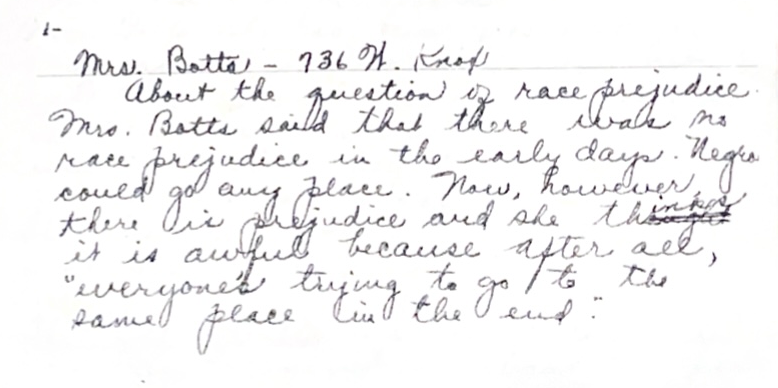 1-
Mrs. Botts - 736 W. Knox
About the question of race prejudice.
Mrs. Botts said that there was no
race prejudice in the early days. Negro
could go any place. Now, however,
there is prejudice and she thinks
it is awful because after all,
"everyone's trying to go to the
same place in the end."